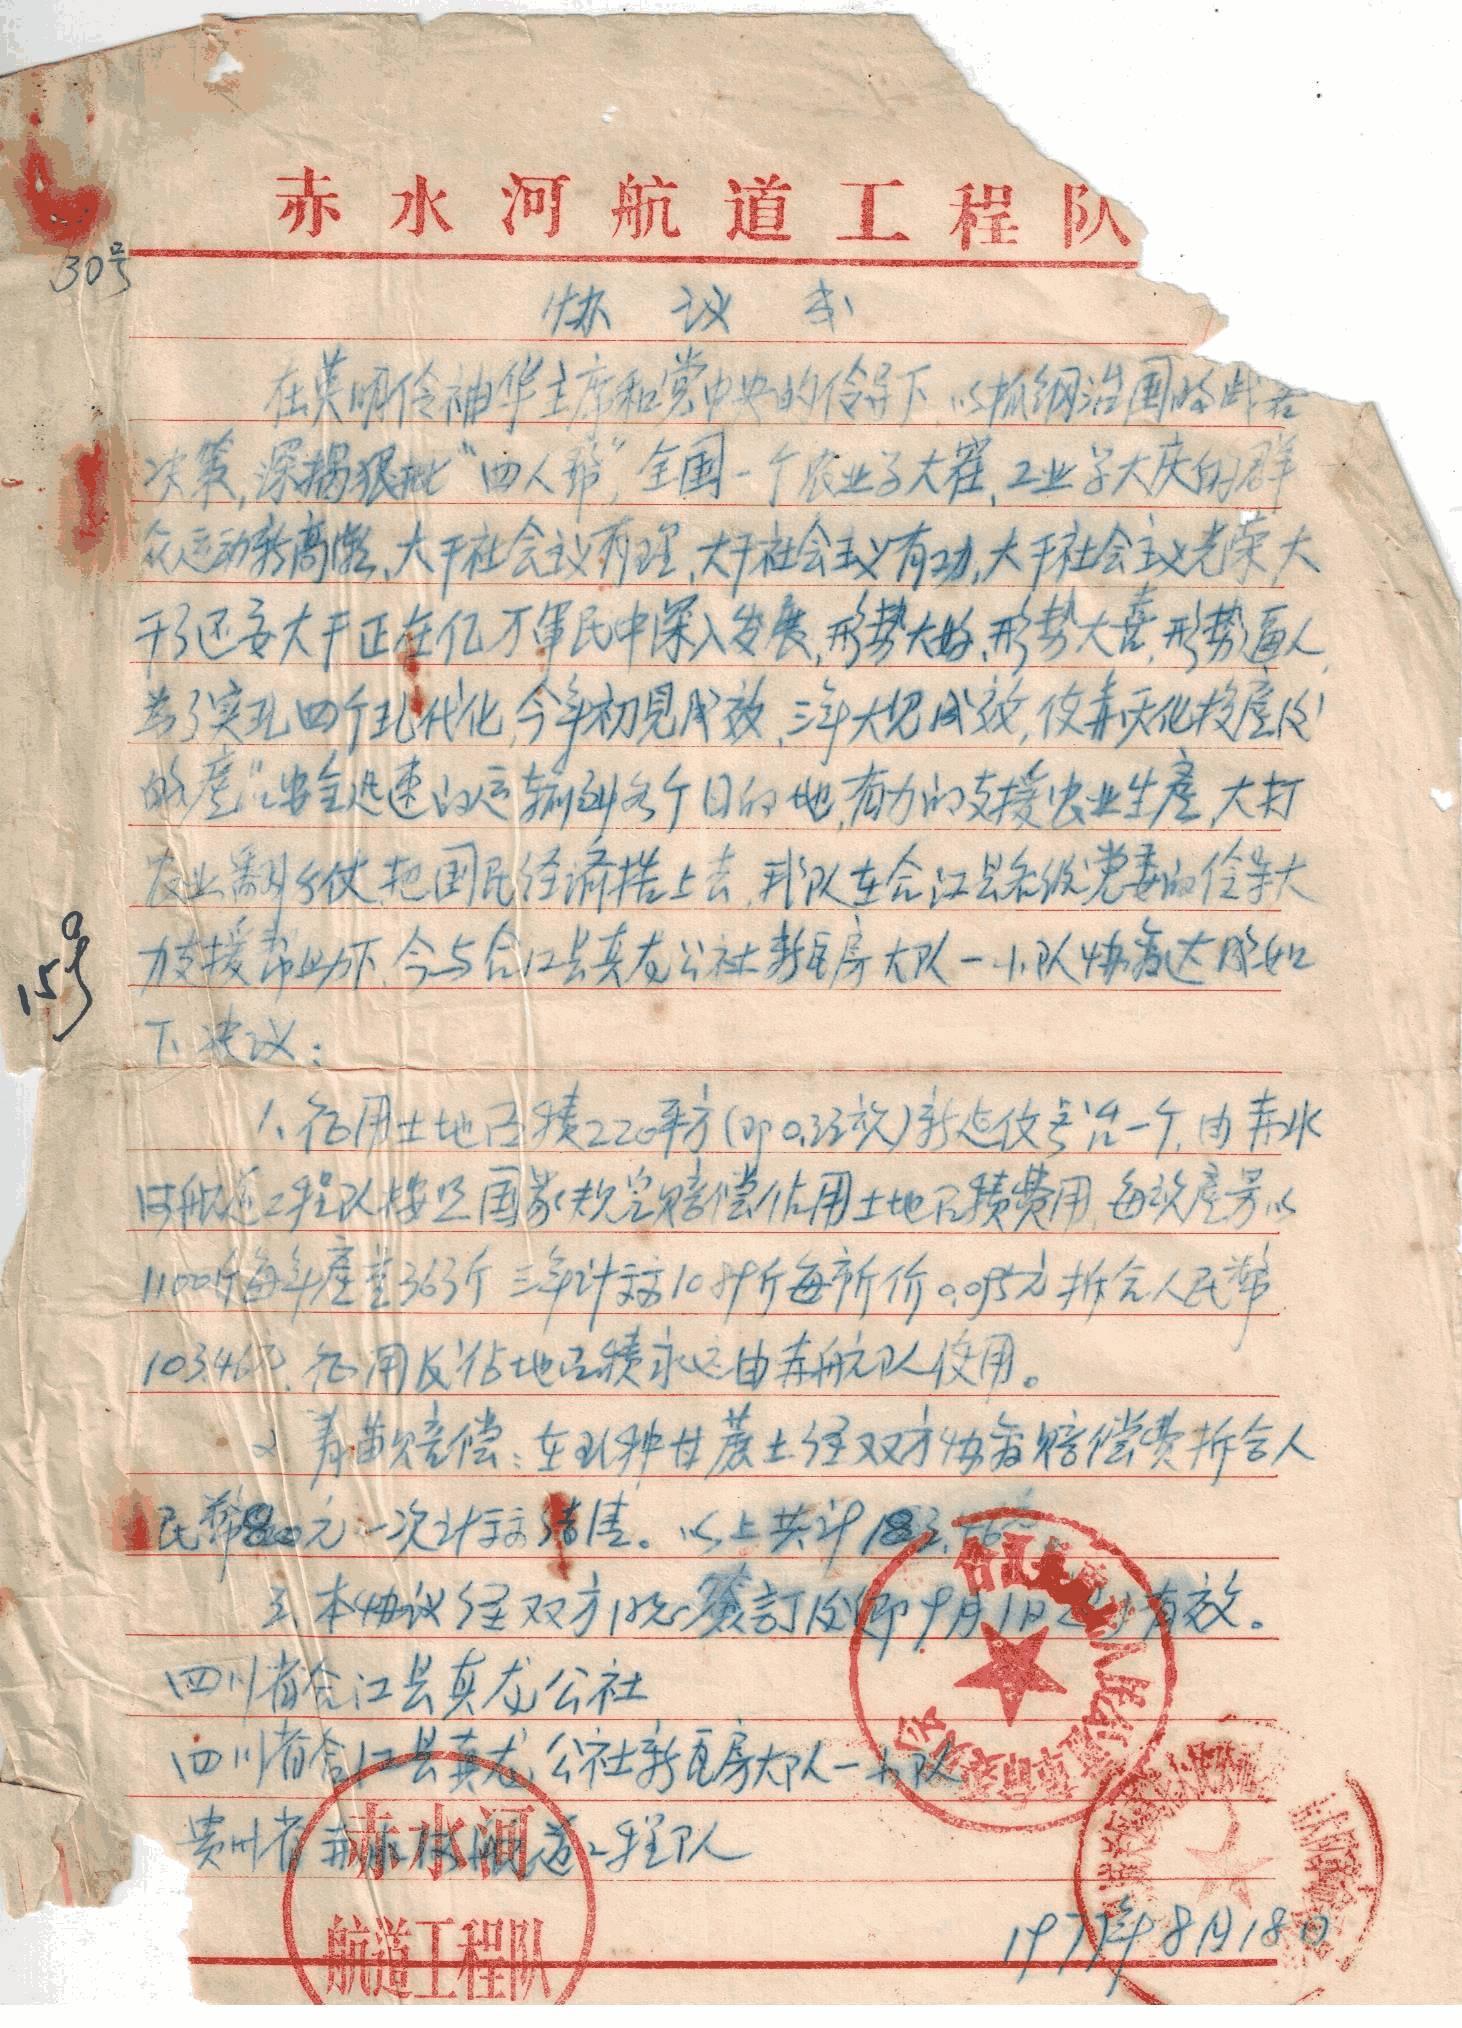 赤水河航道工程队
30号
协议书
在英明伶袖华主席和党中央的伶导下,以抓纲治国的战略
决策,深揭狠批“四人帮”,全国一个农业学大寨,工业学大庆的群
众运动新高潮、大干社会主义有理,大干社会主义有功,大干社会主义光荣,大
干了还要大干正在亿万军民中深入发展,形势大好,形势大喜,形势逼人,
为了实现四个现代化,今年初见成效,三年大见成效,使赤天化投产后
的产品安全迅速的运输到各个目的地,有力的支援农业生产,大打
农业翻身仗,把国民经济搞上去,我队在合江县各级党委的伶导大
力支援帮助下,今与合江县真龙公社新瓦房大队一小队协商达成如
15号
下决议:
1、征用土地面积220平方(即0.33亩)新造绞关台一个,由赤水
河航道工程队按照国家规定赔偿佔用土地面积费用,每亩产量以
1100斤每年产量363斤三年计交1089斤每斤价0.095元折合人民币
103.46元,征用后佔地面积永远由赤航队使用。
2、青苗赔偿:在现种甘蔗土经双方协商赔偿费折合人
民币80.00元一次计交结清。以上共计183.46元
三、本协议经双方同志签訂后即9月1日起生有效。
四川省合江县真龙公社
四川省合江县真龙公社新瓦房大队一小队
贵州省赤水河航道工程队
赤水河
航道工程队
1977年8月18日